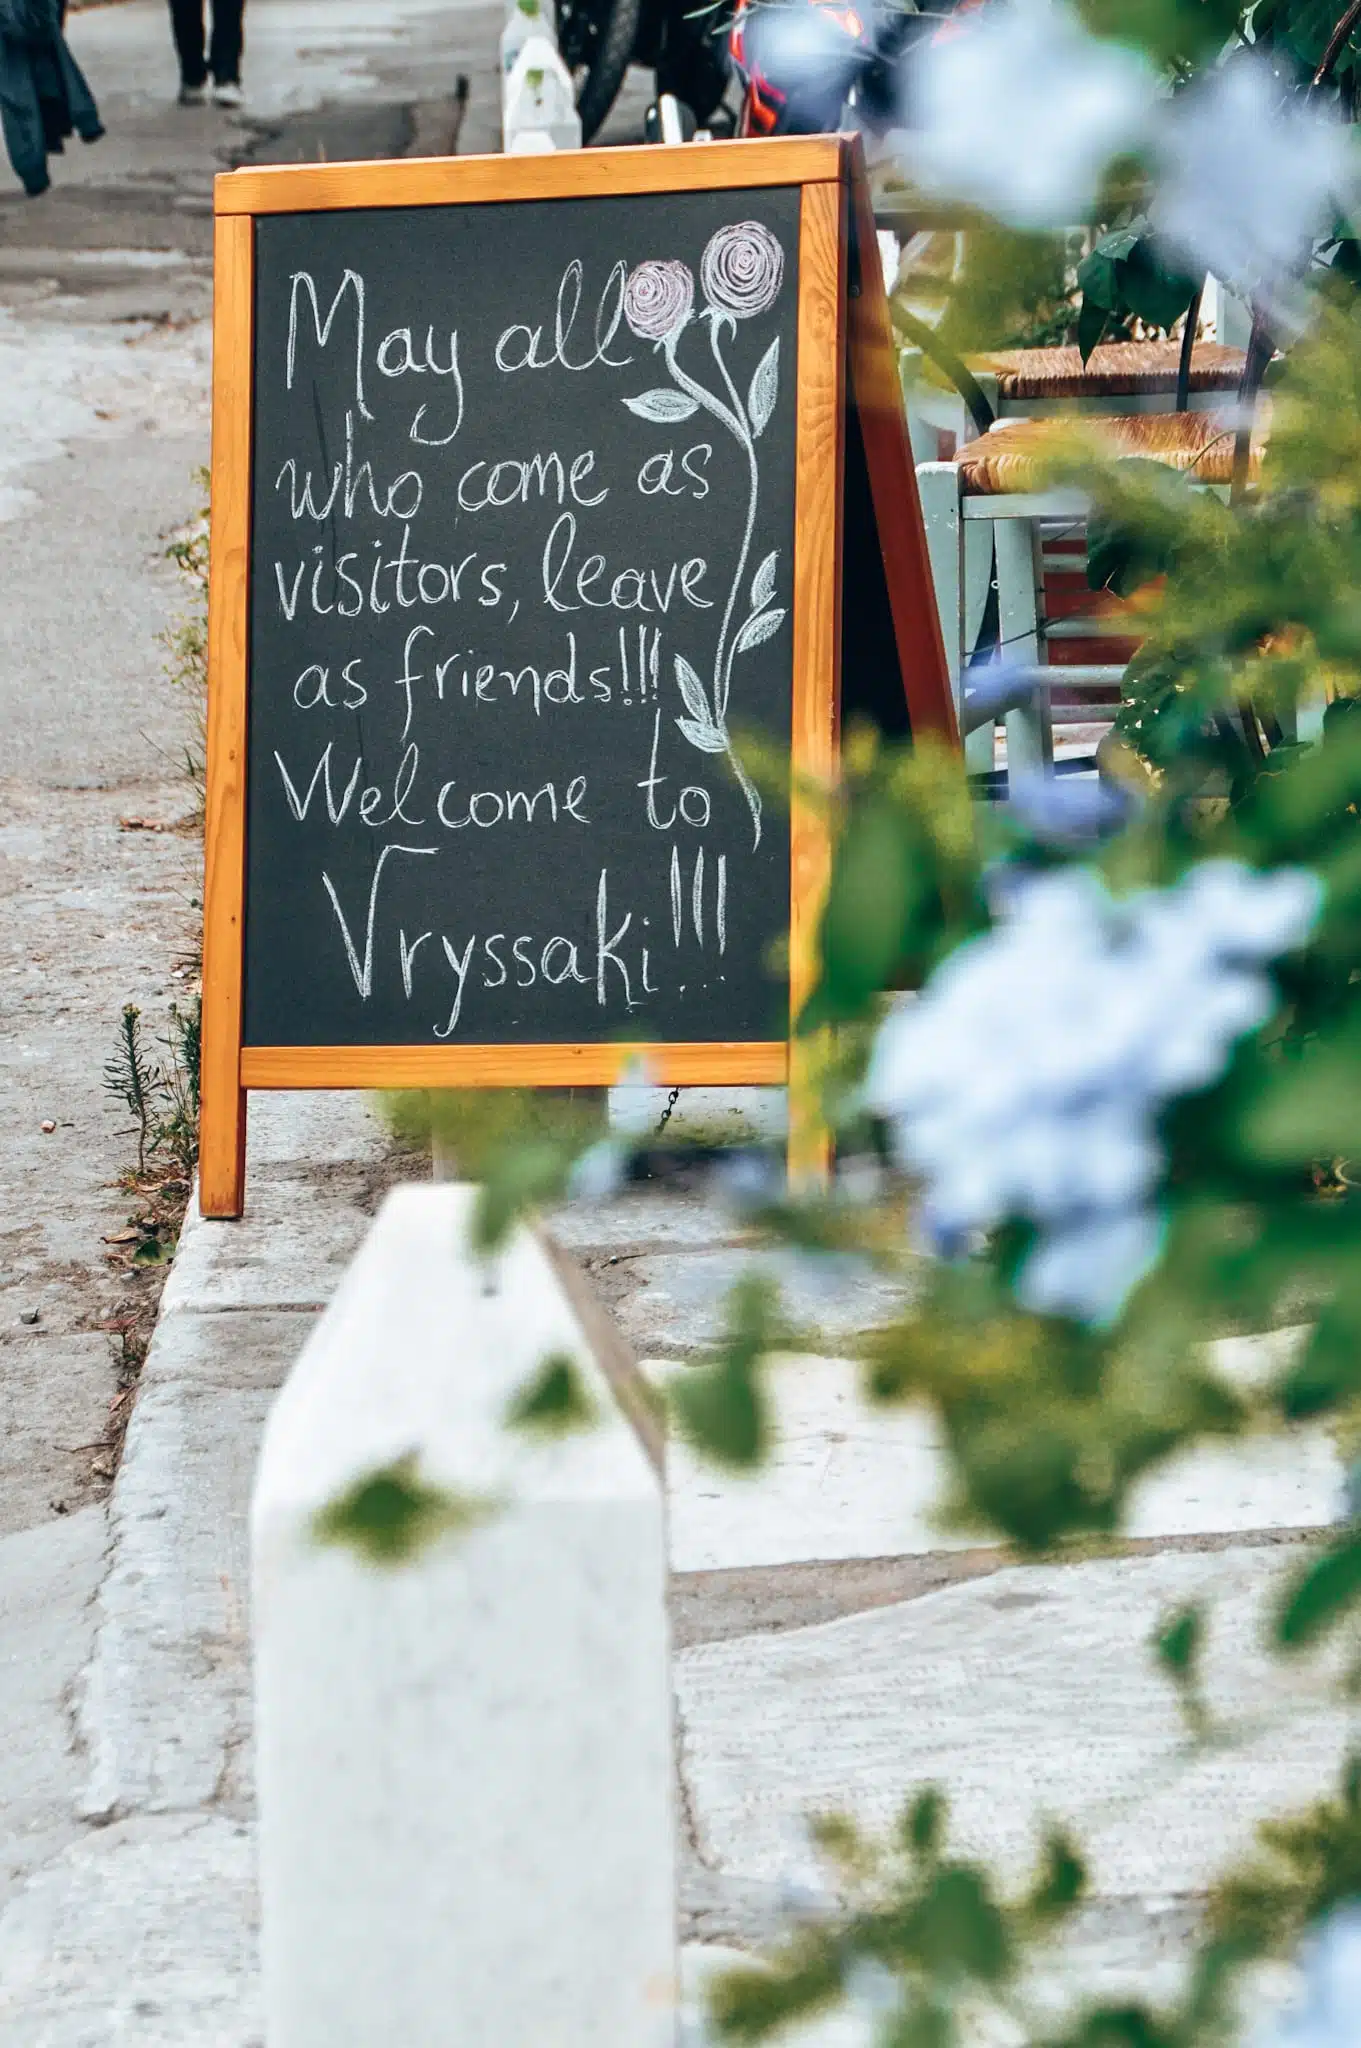 May all
who come as
visitors, leave
as friends!!!
Welcome to
Vryssaki!!!